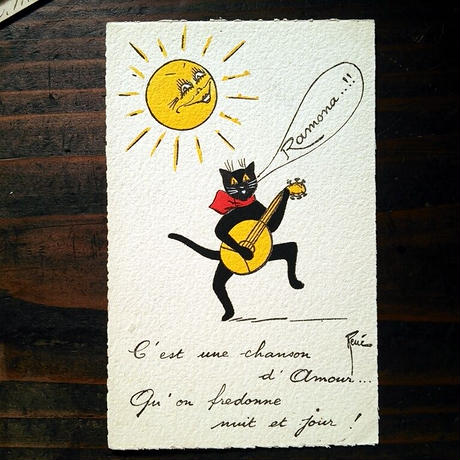 Ramona...!!
René
C'est une chanson
d'Amour...
Qu'on fredonne
nuit et jour !